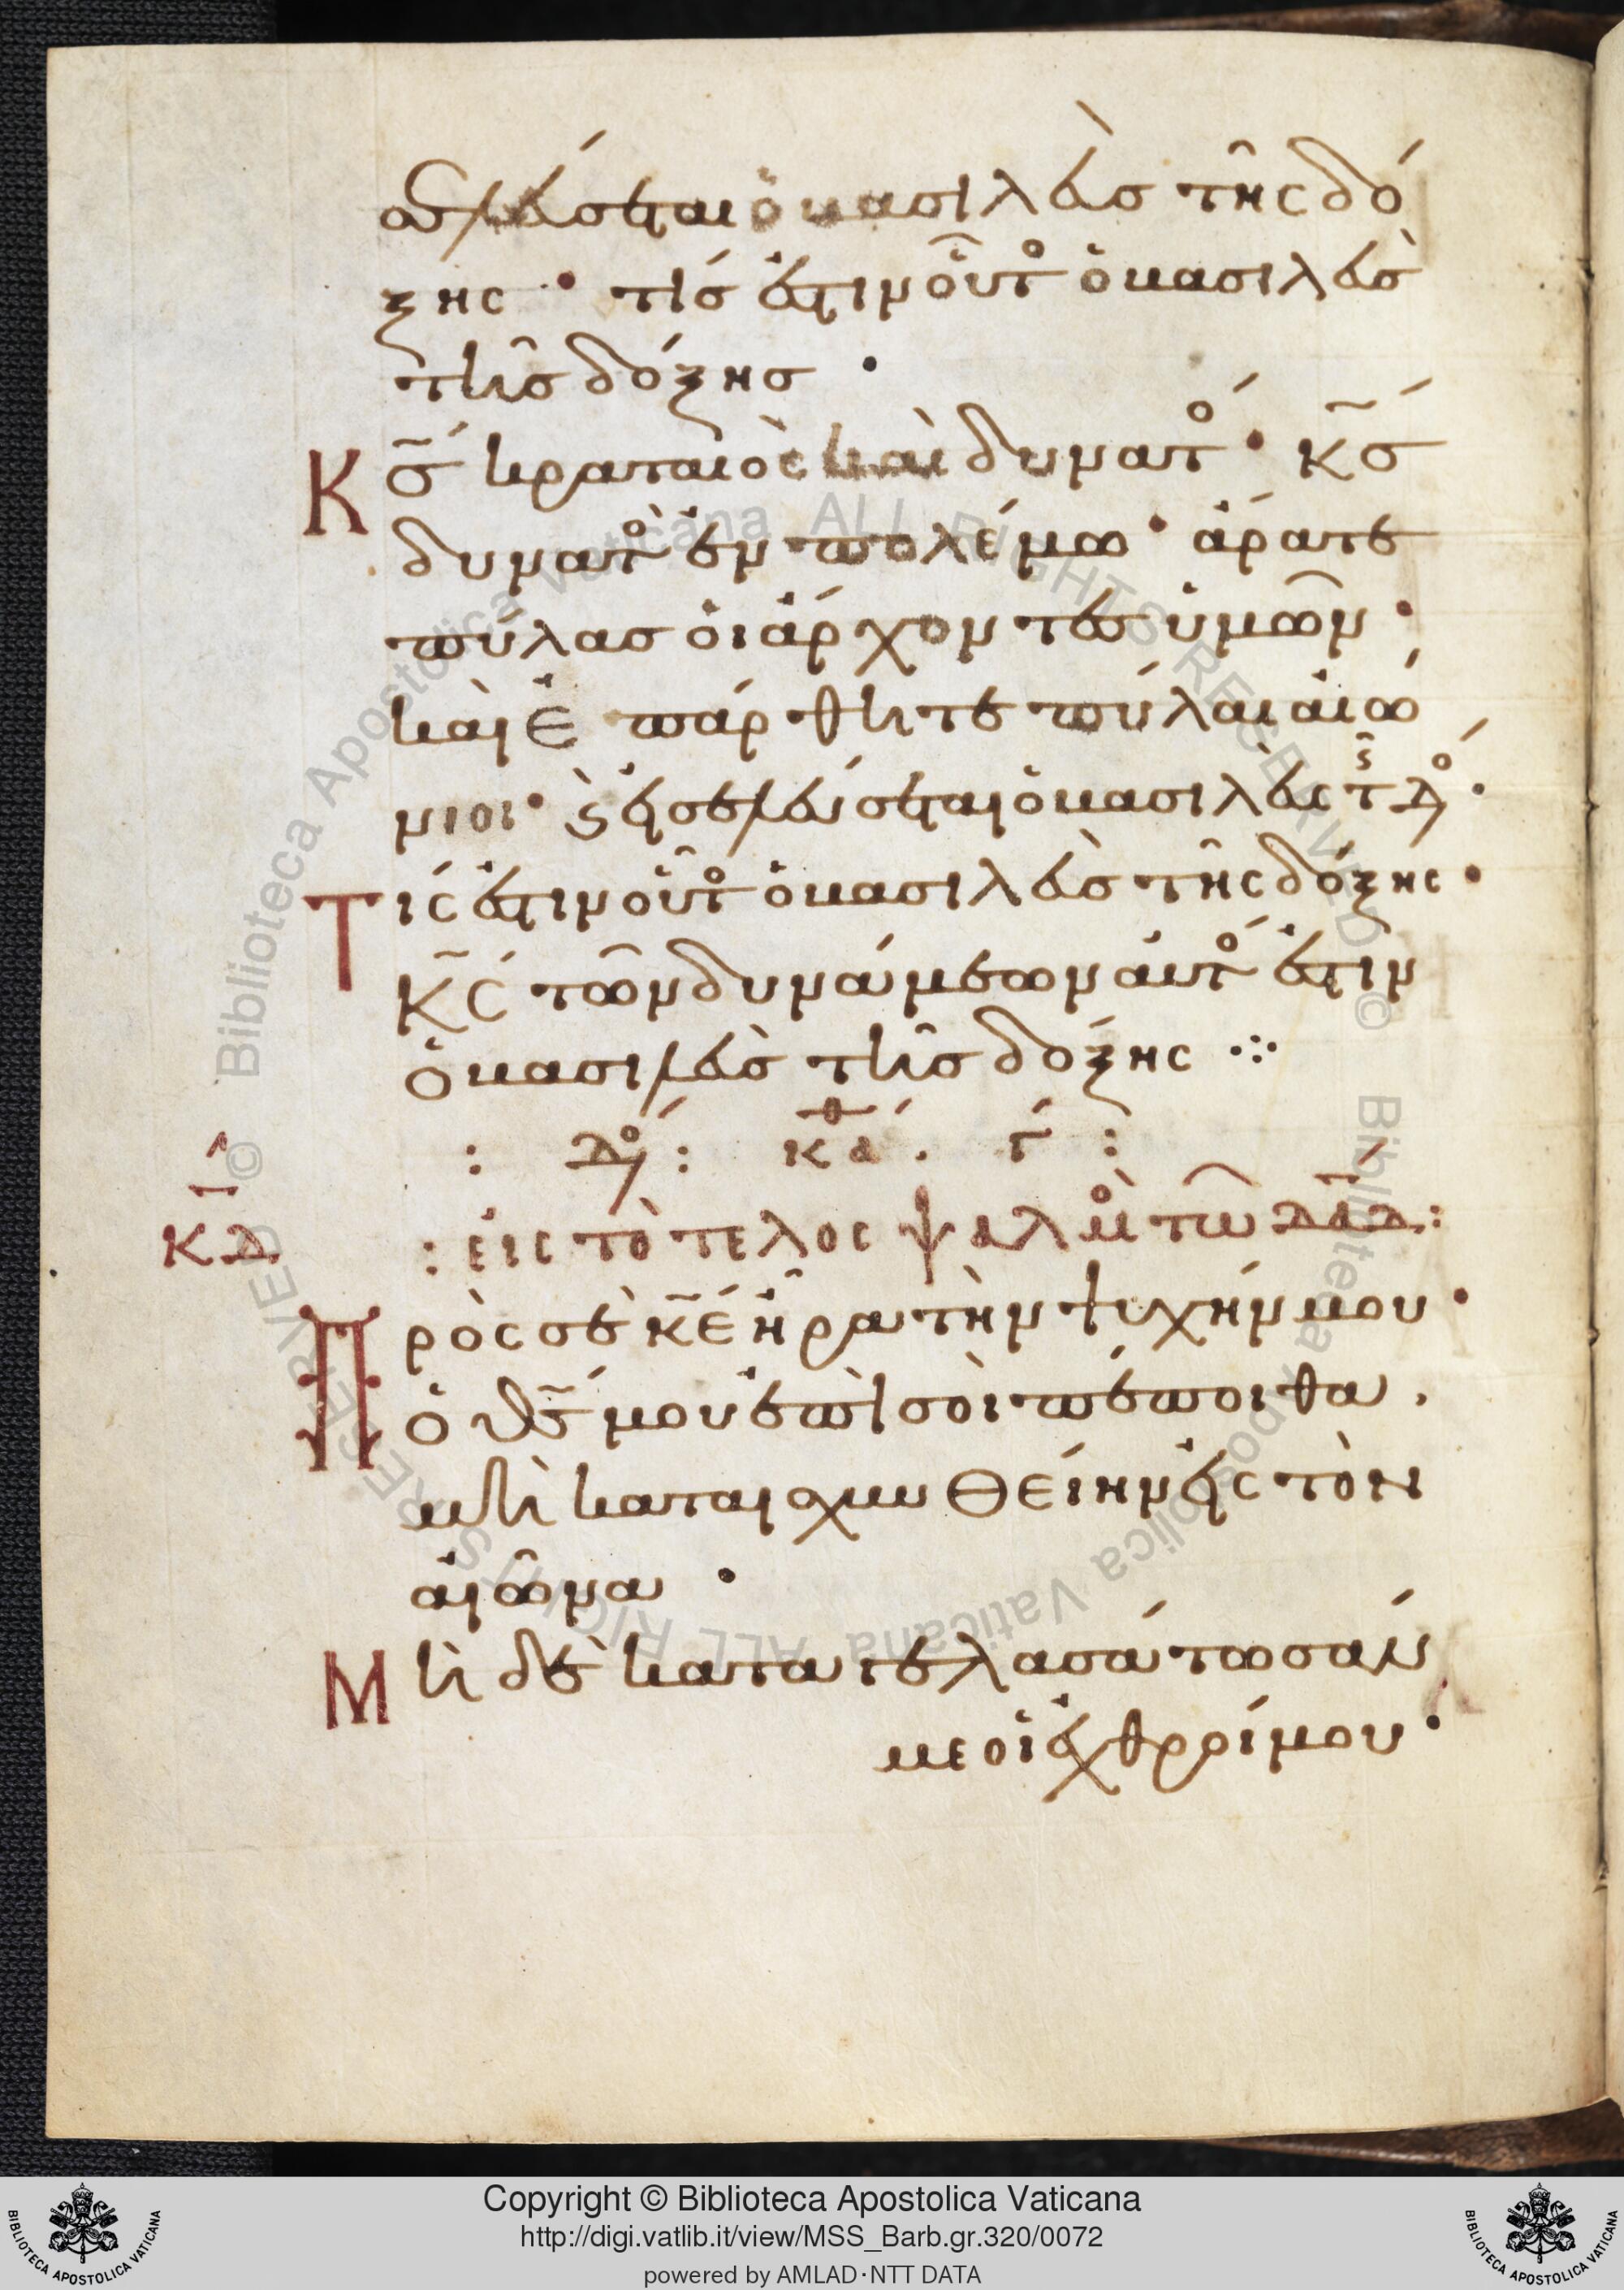 σελεύσεται ὁ βασιλεὺς τῆς δό
ξης · τίς ἐστιν οὗτο ὁ βασιλεὺσ
τῆς δόξης ·
Κσ̃ κραταιὸς καὶ δυνατο · κ̃ς
δυνατο ἐν πολέμω · ἄρατε
πύλας οἱ ἄρχοντες ὑμῶν ·
καὶ ἐπάρθητε πύλαι αἰώ
νιοι · ϗ εἰσελεύσεται ὁ βασιλεὺς τ δο ·
Τίς ἐστιν οὗτο ὁ βασιλεὺς τῆς δόξης ·
κ̃ς τῶν δυνάμεων αὐτο ἐστιν
ὁ βασιλεὺς τῆς δόξης ⁘
: δο : κα θ . γ :
ΚΔ : εἰς τὸ τέλος ψαλμο τῶ δαδ :
Πρὸς σὲ κ̃ε ἦρα τὴν ψυχήν μου ·
ὁ θ̃ς μου ἐπὶ σοὶ πέποιθα .
μὴ καταισχυνθείην εἰς τὸν
αἰῶνα ·
Μὴ δὲ καταγελασάτωσάν
με οἱ ἐχθροί μου ·
Copyright © Biblioteca Apostolica Vaticana
http://digi.vatlib.it/view/MSS_Barb.gr.320/0072
powered by AMLAD·NTT DATA